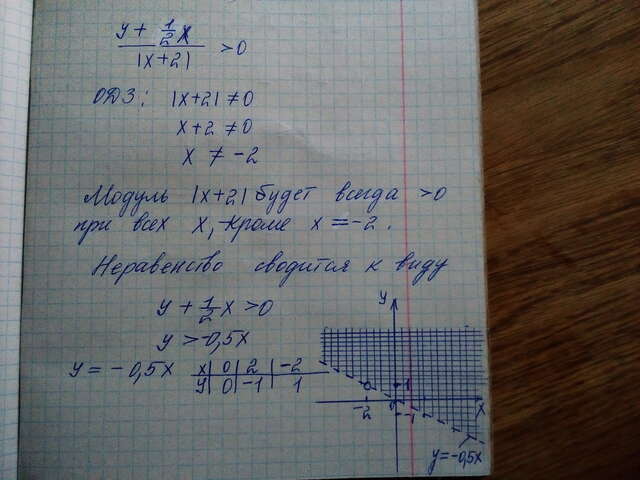 y + 1/2 x
|x+2| >0
ОДЗ: |x+2| ≠0
x+2 ≠0
x ≠ -2
Модуль |x+2| будет всегда >0
при всех x, кроме x = -2.
Неравенство сводится к виду
y + 1/2 x >0
y > -0,5x
y = -0,5x x | 0 | 2 | -2
y | 0 | -1 | 1
y
1
-2 0 x
-1
y=-0,5x